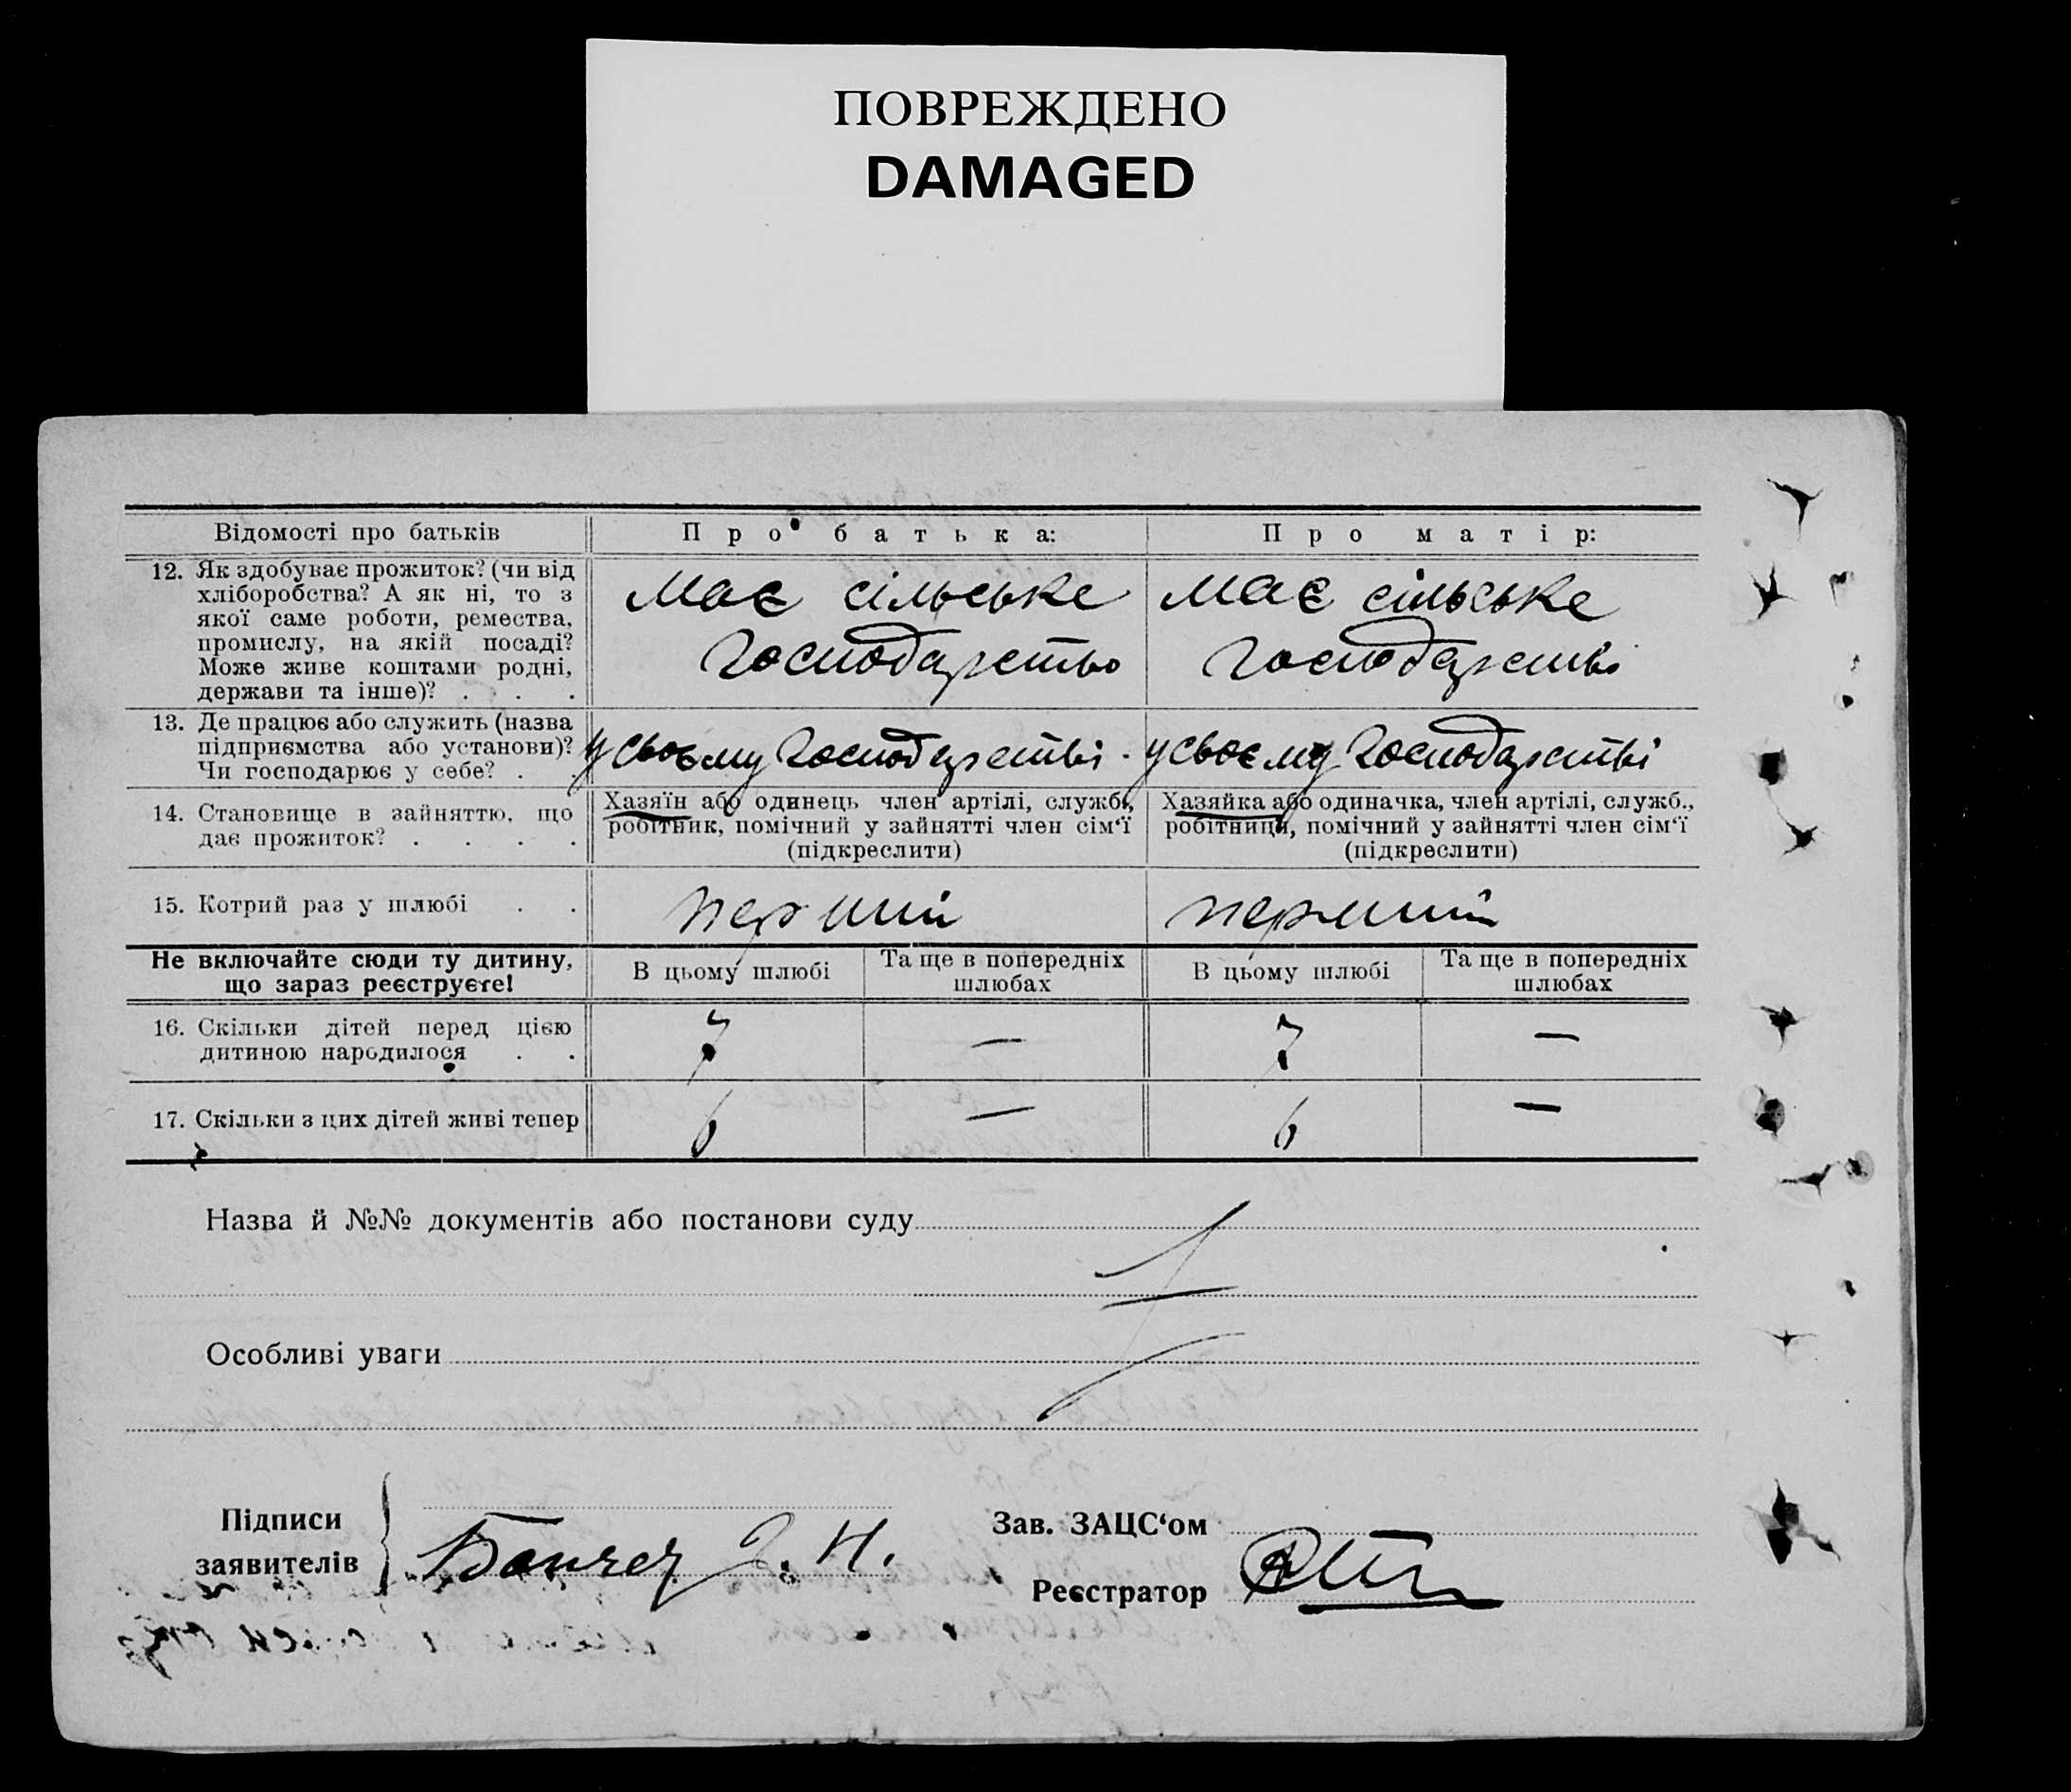 ПОВРЕЖДЕНО
DAMAGED
Відомості про батьків
Про батька:
Про матір:
12. Як здобуває прожиток? (чи від
хліборобства? А як ні, то з
якої саме роботи, ремества,
промислу, на якій посаді?
Може живе коштами родні,
держави та інше)? . . .
має сільське
господарство
має сільське
господарство
13. Де працює або служить (назва
підприємства або установи)?
Чи господарює у себе? . .
у своєму господарстві.
у своєму господарстві
14. Становище в зайняттю, що
дає прожиток? . . . .
Хазяїн або одинець член артілі, служб.,
робітник, помічний у зайнятті член сім‘ї
(підкреслити)
Хазяйка або одиначка, член артілі, служб.,
робітниця, помічний у зайнятті член сім‘ї
(підкреслити)
15. Котрий раз у шлюбі . .
перший
перший
Не включайте сюди ту дитину,
що зараз реєструєте!
В цьому шлюбі
Та ще в попередніх
шлюбах
В цьому шлюбі
Та ще в попередніх
шлюбах
16. Скільки дітей перед цією
дитиною народилося . .
7
—
7
—
17. Скільки з цих дітей живі тепер
6
—
6
—
Назва й №№ документів або постанови суду
Особливі уваги
Підписи
заявителів
Зав. ЗАЦС‘ом
Реєстратор